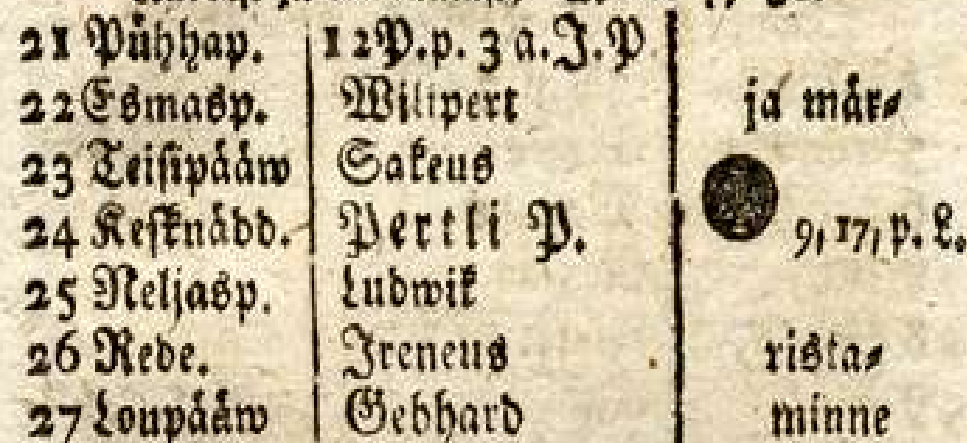 21 Pühhap. 12P.p. 3 a.J.P
22 Esmasp. Wilipert ja mär⸗
23 Teisipääw Sakeus
24 Keſknädd. Pertli P. 9, 17, p. L.
25 Neljasp. Ludwik
26 Rede. Ireneus rista⸗
27 Loupääw Gebhard minne